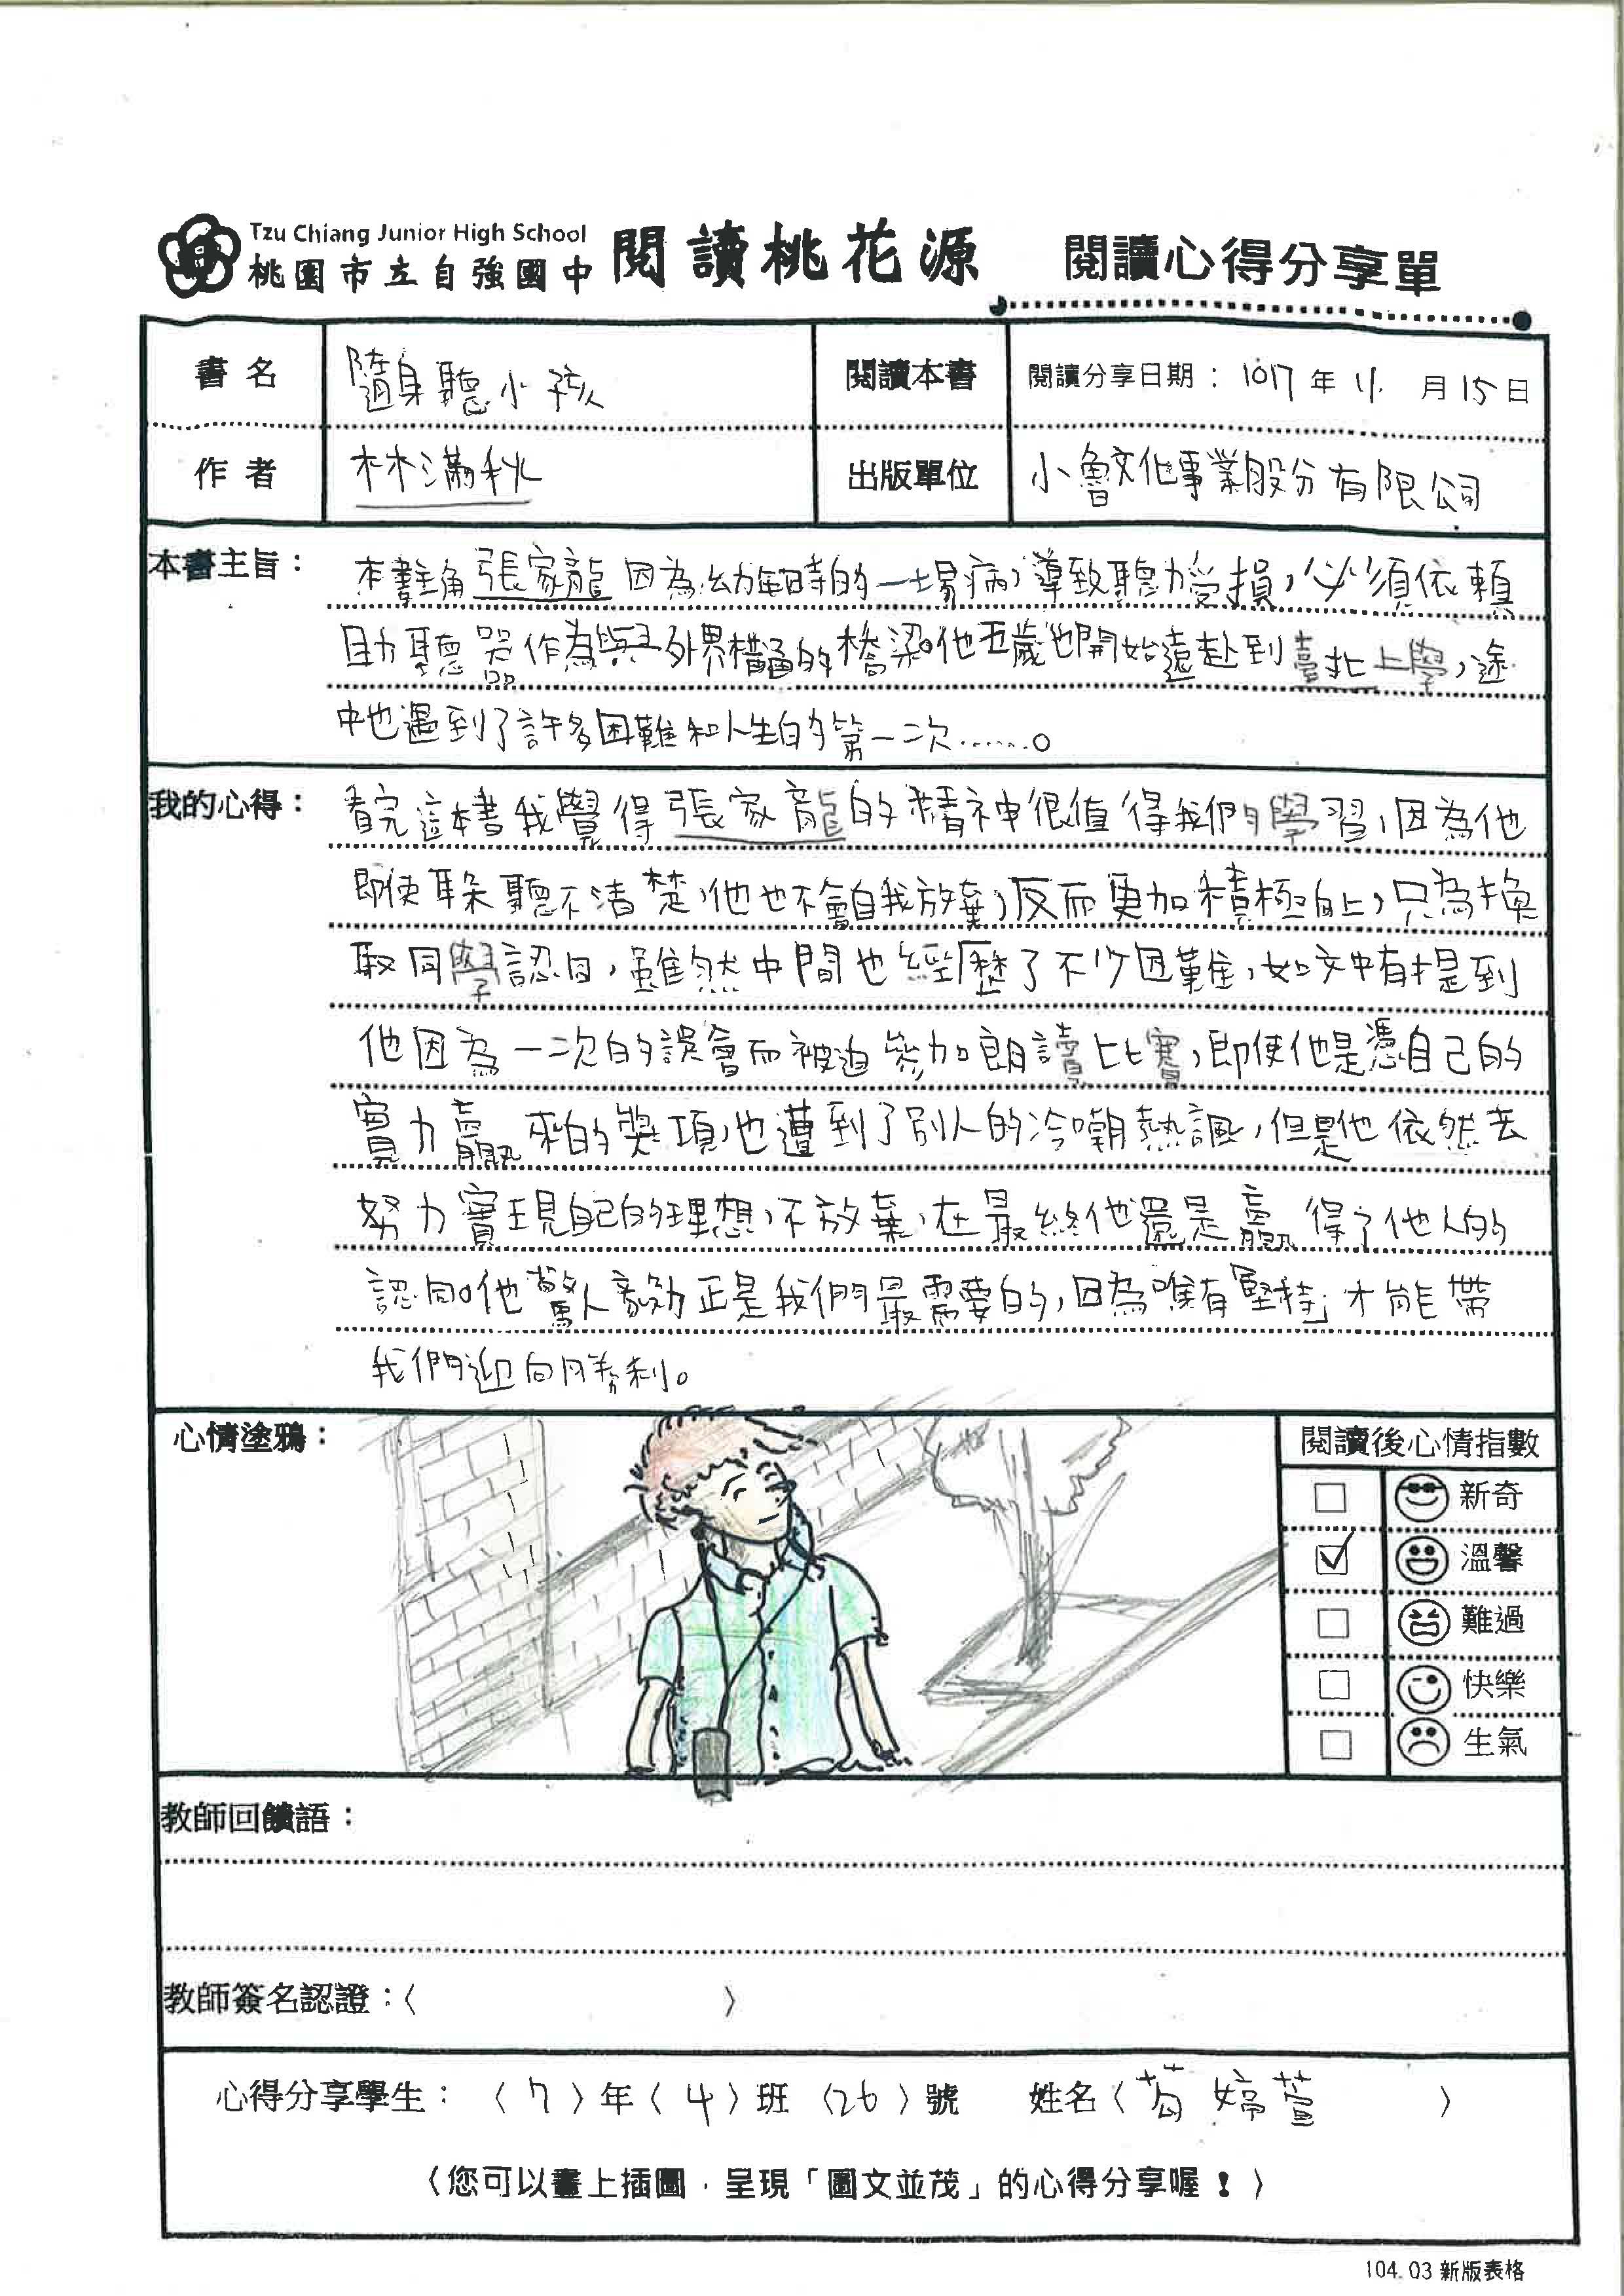 Tzu Chiang Junior High School
桃園市立自強國中 閱讀桃花源 閱讀心得分享單
書名 隨身聽小孩 閱讀本書 閱讀分享日期：1017年11月15日
作者 林滿秋 出版單位 小魯文化事業股份有限公司
本書主旨：本書主角張家龍因為幼年時的一場病，導致聽力受損，必須依賴
助聽器作為與外界構通的橋梁。他五歲也開始遠赴到臺北上學，途
中也遇到了許多困難和人生的第一次……。
我的心得：看完這本書我覺得張家龍的精神很值得我們學習，因為他
即使耳朵聽不清楚，他也不會自我放棄，反而更加積極向上，只為換
取同學認同，雖然中間也經歷了不少困難，如文中有提到
他因為一次的誤會而被迫參加朗讀比賽，即使他是憑自己的
實力贏來的獎項，也遭到了別人的冷嘲熱諷，但是他依然去
努力實現自己的理想，不放棄，在最終他還是贏得了他人的
認同。他驚人毅力正是我們最需要的，因為唯有堅持，才能帶
我們迎向勝利。
心情塗鴉： 閱讀後心情指數
新奇
溫馨
難過
快樂
生氣
教師回饋語：
教師簽名認證：〈 〉
心得分享學生：〈7〉年〈4〉班〈26〉號 姓名〈 婷萱〉
〈您可以畫上插圖，呈現「圖文並茂」的心得分享喔！〉
104.03新版表格